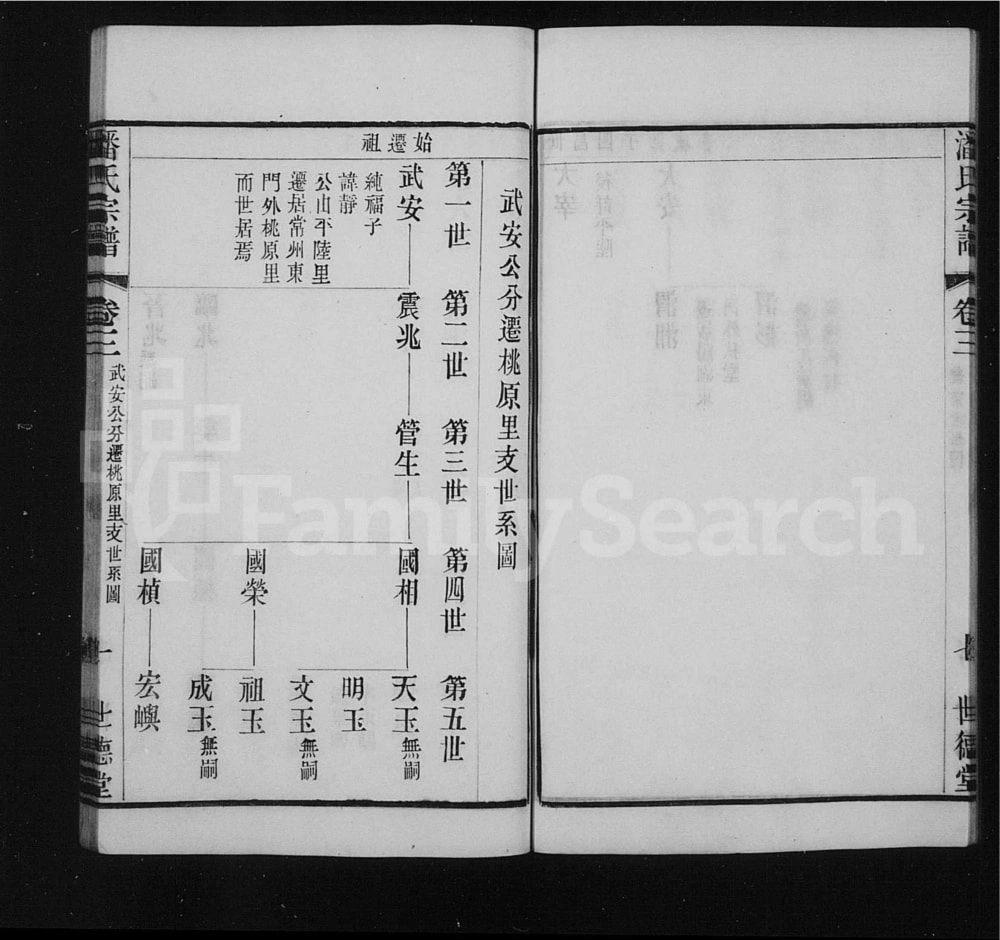 潘氏宗譜
卷三
世德堂
武安公分遷桃原里支世系圖
第一世
第二世
第三世
第四世
第五世
始遷祖
武安
純福子
諱靜
公由平陸里
遷居常州東
門外桃原里
而世居焉
震兆
管生
國相
天玉無嗣
明玉
文玉無嗣
國榮
祖玉
成玉無嗣
國楨
宏嶼
潘氏宗譜
卷三
武安公分遷桃原里支世系圖
一
世德堂
FamilySearch